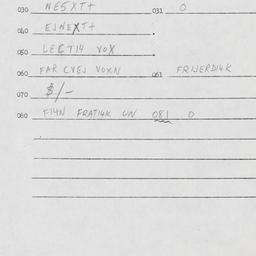 030 NESXT+ 031 0
040 EJNEXT+
050 LECT14 VOX
060 FAR CVEJ VOXN 061 FRIJERDI4K
070 $/-
080 FI4N FRATI4K UN 081 0